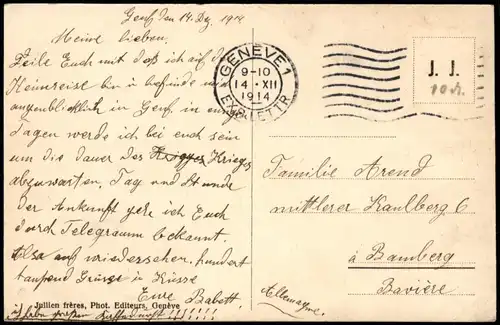 Genf den 14 Dez. 1914
Meine lieben.
Teile Euch mit daß ich auf der
Heimreise bin u. befinde mich
augenblicklich in Genf. in einigen
Tagen werde ich bei euch sein
um die Dauer des Krieges
abzuwarten, Tag und Stunde
der Ankunft gebe ich Euch
durch Telegramm bekannt.
Also auf wiedersehen. hundert
tausend Grüsse u Küsse
Eure Babett.
Jullien frères, Phot. Editeurs, Genève
GENÈVE 1
9-10
14-XII
1914
EXP. LETTR.
J. J.
Familie Arend
mittlerer Kaulberg 6
à Bamberg
Bavière
Allemagne.